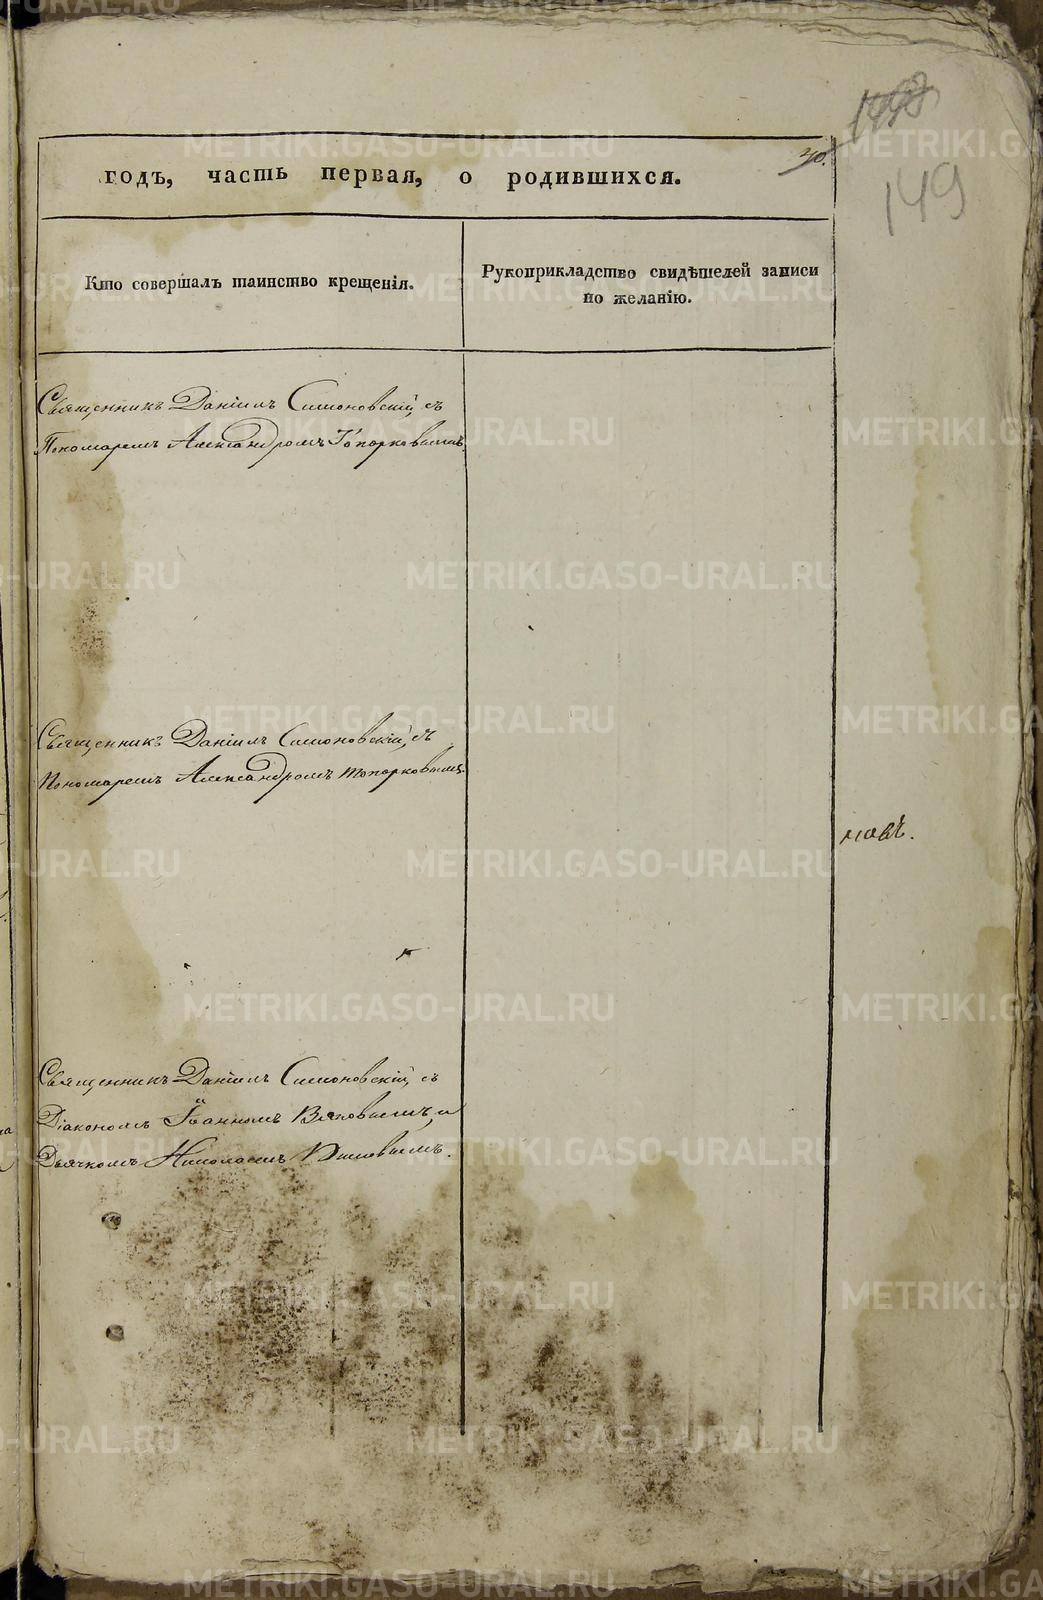 149
40.
годъ, часть первая, о родившихся.
Кто совершалъ таинство крещенія.
Рукоприкладство свидѣтелей записи
по желанію.
Священникъ Даніилъ Симоновскій, съ
Пономаремъ Александромъ Топорковымъ.
Священникъ Даніилъ Симоновскій, съ
Пономаремъ Александромъ Топорковымъ.
новъ.
Священникъ Даніилъ Симоновскій, съ
Діакономъ Іоанномъ и
Дьячкомъ Николаемъ
METRIKI.GASO-URAL.RU